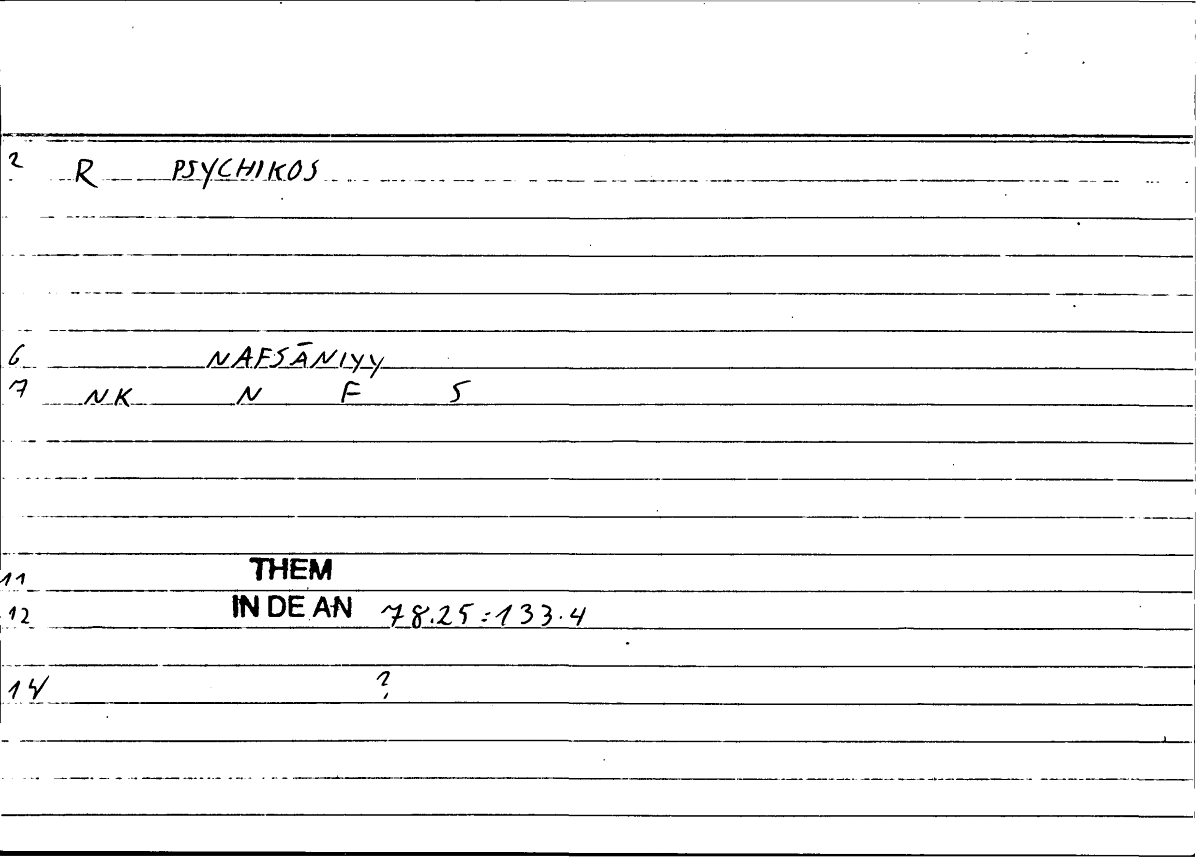 2 R PSYCHIKOS
6 NAFSĀNIYY
7 NK N F S
11 THEM
12 IN DE AN 78.25:133.4
14 ?